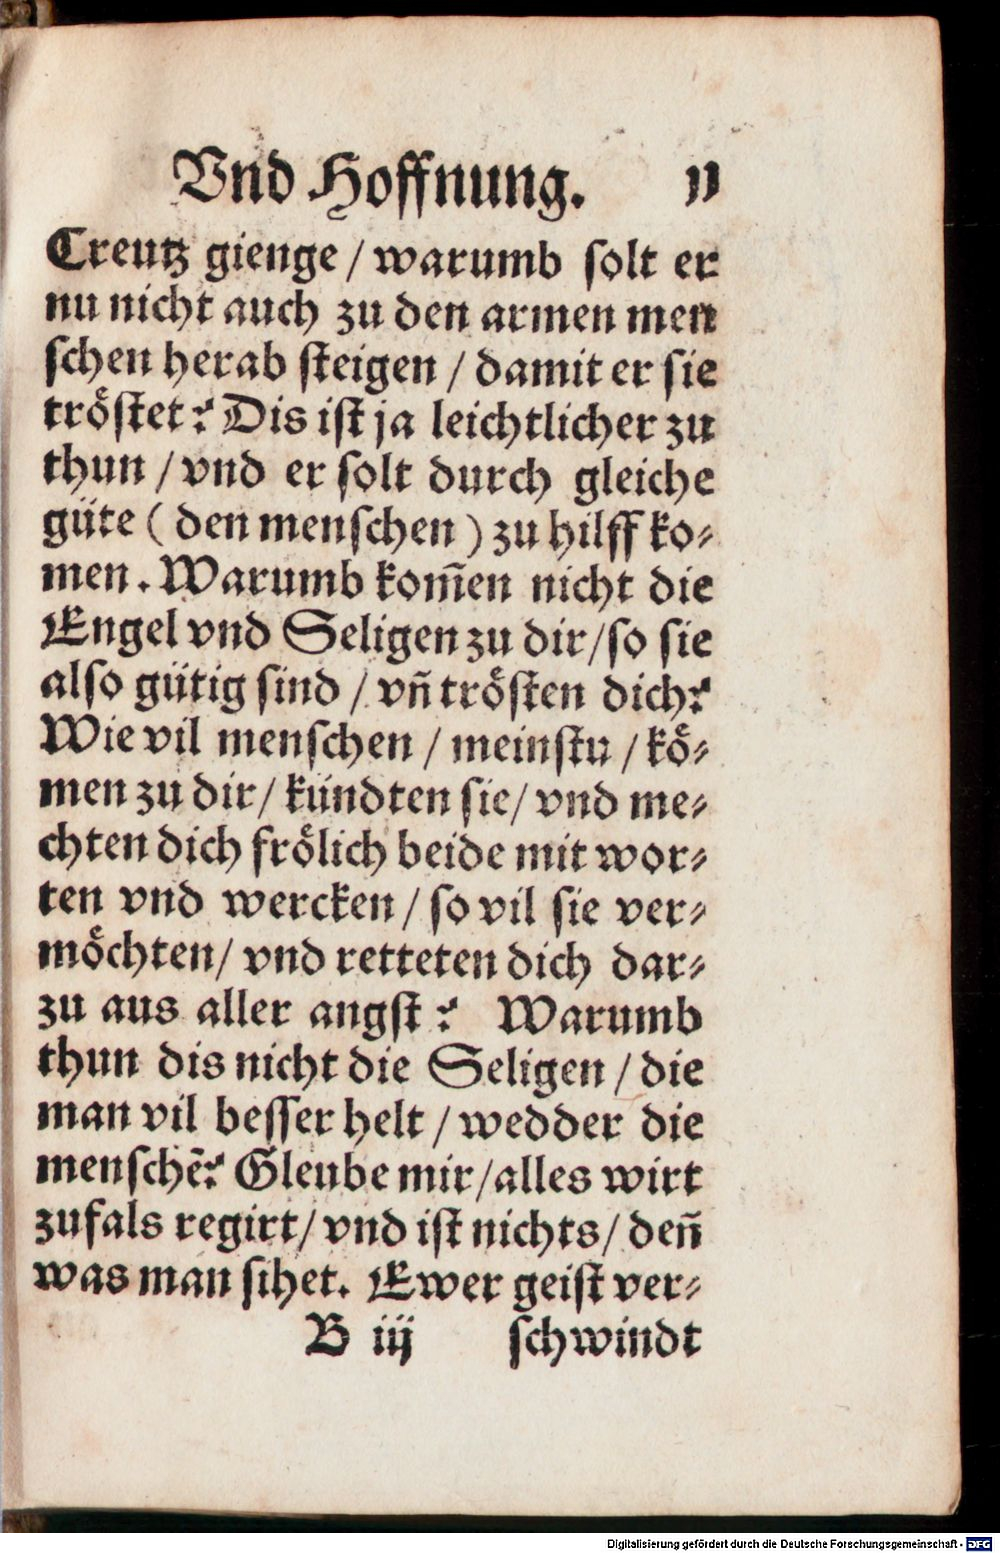 Vnd Hoffnung. 11
Creutz gienge / warumb solt er
nu nicht auch zu den armen men
schen herab steigen / damit er sie
tröstet? Dis ist ja leichtlicher zu
thun / vnd er solt durch gleiche
güte ( den menschen ) zu hilff ko-
men. Warumb kom̃en nicht die
Engel vnd Seligen zu dir / so sie
also gütig sind / vñ trösten dich?
Wie vil menschen / meinstu / kö-
men zu dir / kündten sie / vnd me-
chten dich frölich beide mit wor-
ten vnd wercken / so vil sie ver-
möchten / vnd retteten dich dar-
zu aus aller angst? Warumb
thun dis nicht die Seligen / die
man vil besser helt / wedder die
menschẽ? Gleube mir / alles wirt
zufals regirt / vnd ist nichts / deñ
was man sihet. Ewer geist ver-
B iij schwindt
Digitalisierung gefördert durch die Deutsche Forschungsgemeinschaft - DFG